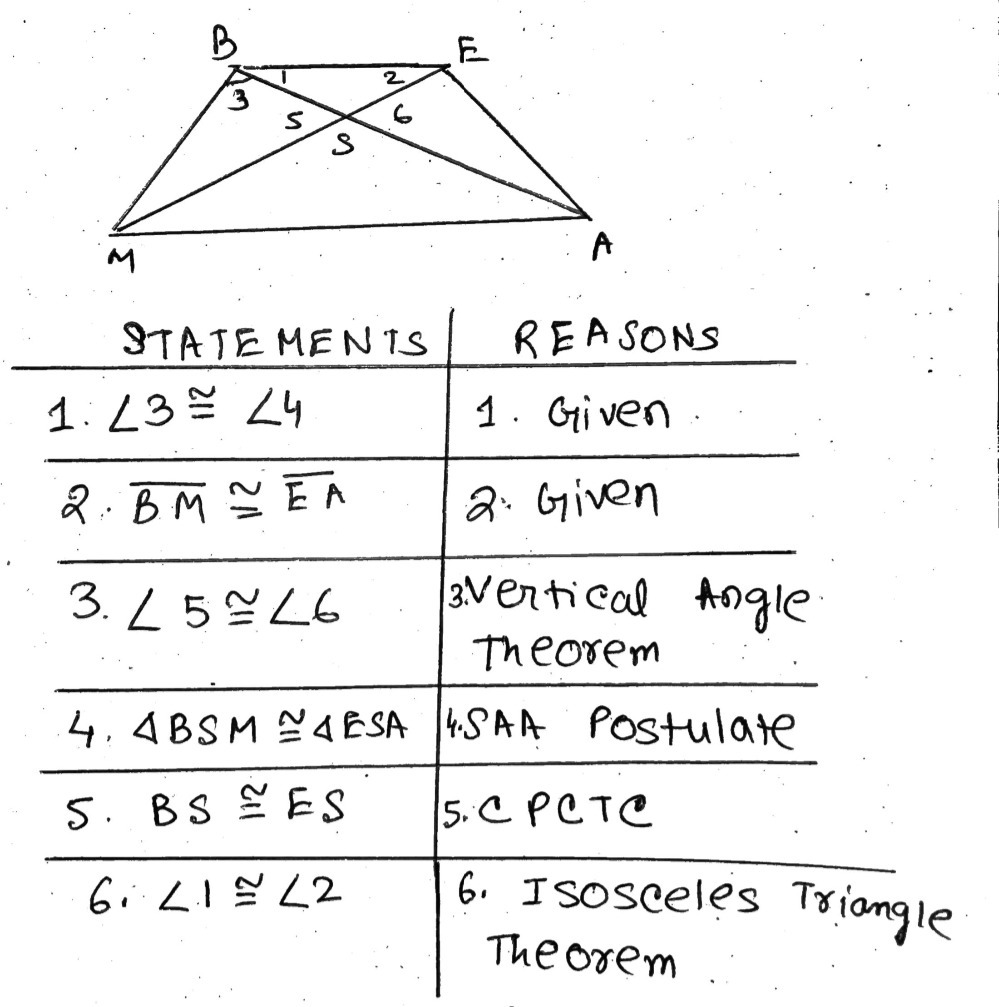 B E
1 2
3
5 6
S
M A
STATEMENTS REASONS
1. ∠3 ≅ ∠4 1. Given
2. B̅M̅ ≅ E̅A̅ 2. Given
3. ∠5 ≅ ∠6 3. Vertical Angle
Theorem
4. △BSM ≅ △ESA 4. SAA Postulate
5. BS ≅ ES 5. CPCTC
6. ∠1 ≅ ∠2 6. Isosceles Triangle
Theorem